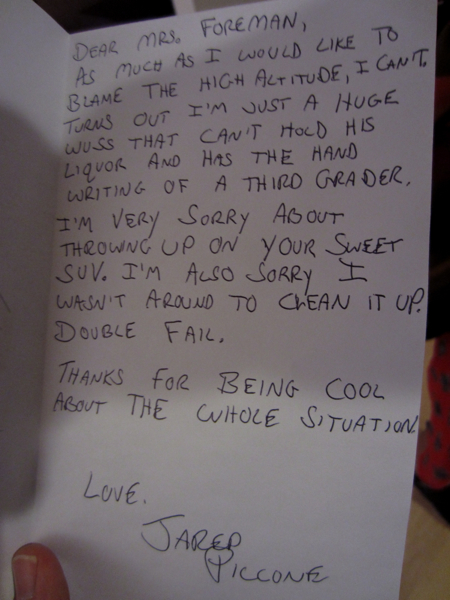 DEAR MRS. FOREMAN,
AS MUCH AS I WOULD LIKE TO
BLAME THE HIGH ALTITUDE, I CAN'T.
TURNS OUT I'M JUST A HUGE
WUSS THAT CAN'T HOLD HIS
LIQUOR AND HAS THE HAND
WRITING OF A THIRD GRADER.
I'M VERY SORRY ABOUT
THROWING UP ON YOUR SWEET
SUV. I'M ALSO SORRY I
WASN'T AROUND TO CLEAN IT UP.
DOUBLE FAIL.
THANKS FOR BEING COOL
ABOUT THE WHOLE SITUATION
LOVE.
JARED
PICCONE